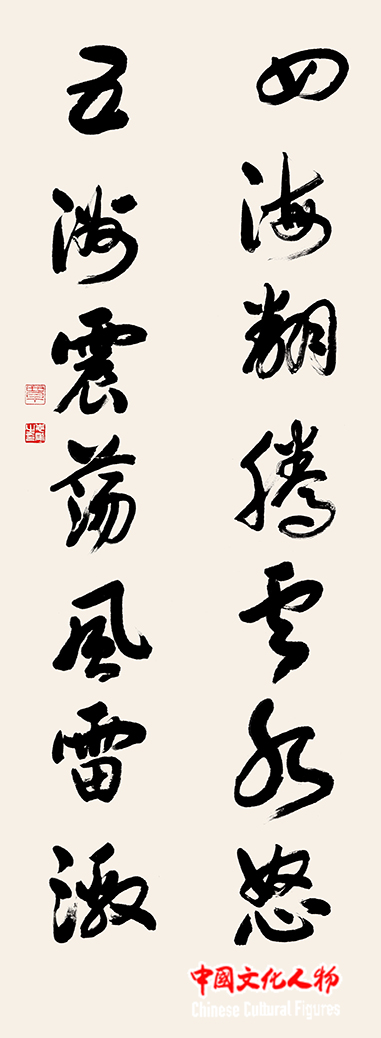 四海翻腾云水怒
五洲震荡风雷激
中國文化人物
Chinese Cultural Figures